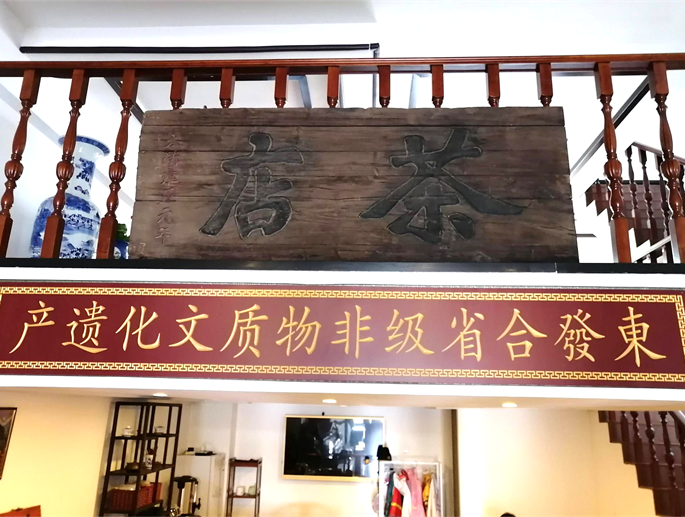 茶店
東發合省级非物质文化遗产